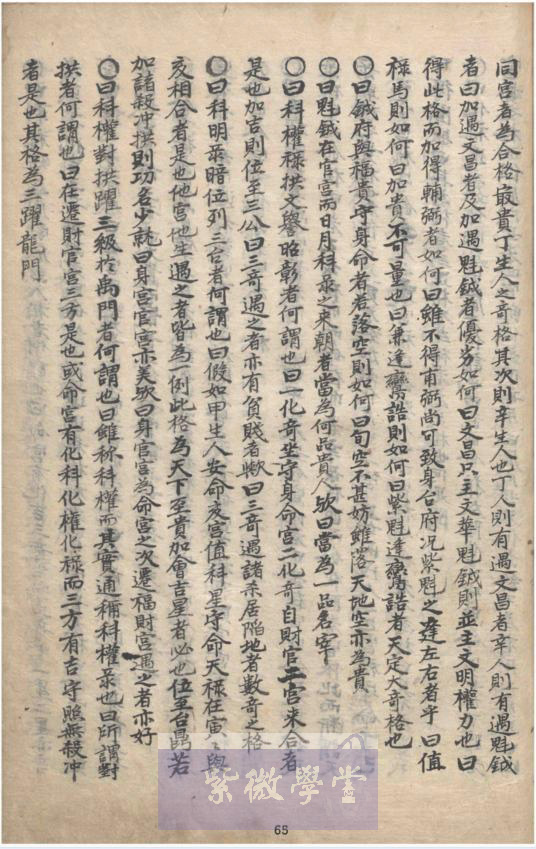 同宮者為合格最貴丁生人之奇格其次則辛生人也丁人則有遇文昌者辛人則有遇魁鉞
者曰加遇文昌者及加遇魁鉞者優劣如何曰文昌只主文華魁鉞則並主文明權力也曰
得此格而加得輔弼者如何曰雖不得甫弼尚可致身台府况紫魁之逢左右者乎曰值
祿馬則如何曰加貴不可量也曰兼逢鸞誥則如何曰紫魁逢鸞誥者天定大奇格也
〇曰鉞府與福貴守身命者若落空則如何曰旬空不甚妨雖落天地空亦為貴
〇曰魁鉞在官宮而日月科彔之來朝者當為何品貴人欤曰當為一品名宰
〇曰科權祿拱文譽昭彰者何謂也曰一化奇坐守身命宮二化奇自財官二宮來合者
是也加吉則位至三公曰三奇遇之者亦有貧賤者欤曰三奇遇諸杀居陷地者數奇之格
〇曰科明彔暗位列三台者何謂也曰假如甲生人安命亥宮值科星守命天祿在寅寅與
亥相合者是也他宮他生遇之者皆為一例此格為天下至貴加會吉星者必也位至台鼎若
加諸殺冲拱則功名少就曰身宮官宮亦美欤曰身官宮為命宮之次遷福財宮遇之者亦好
〇曰科權對拱躍三級於禹門者何謂也曰雖称科權而其實通稱科權彔也曰所謂對
拱者何謂也曰在遷財官宮三方是也或命宮有化科化權化祿而三方有吉守照無殺冲
者是也其格為三躍龍門
紫微學堂
65